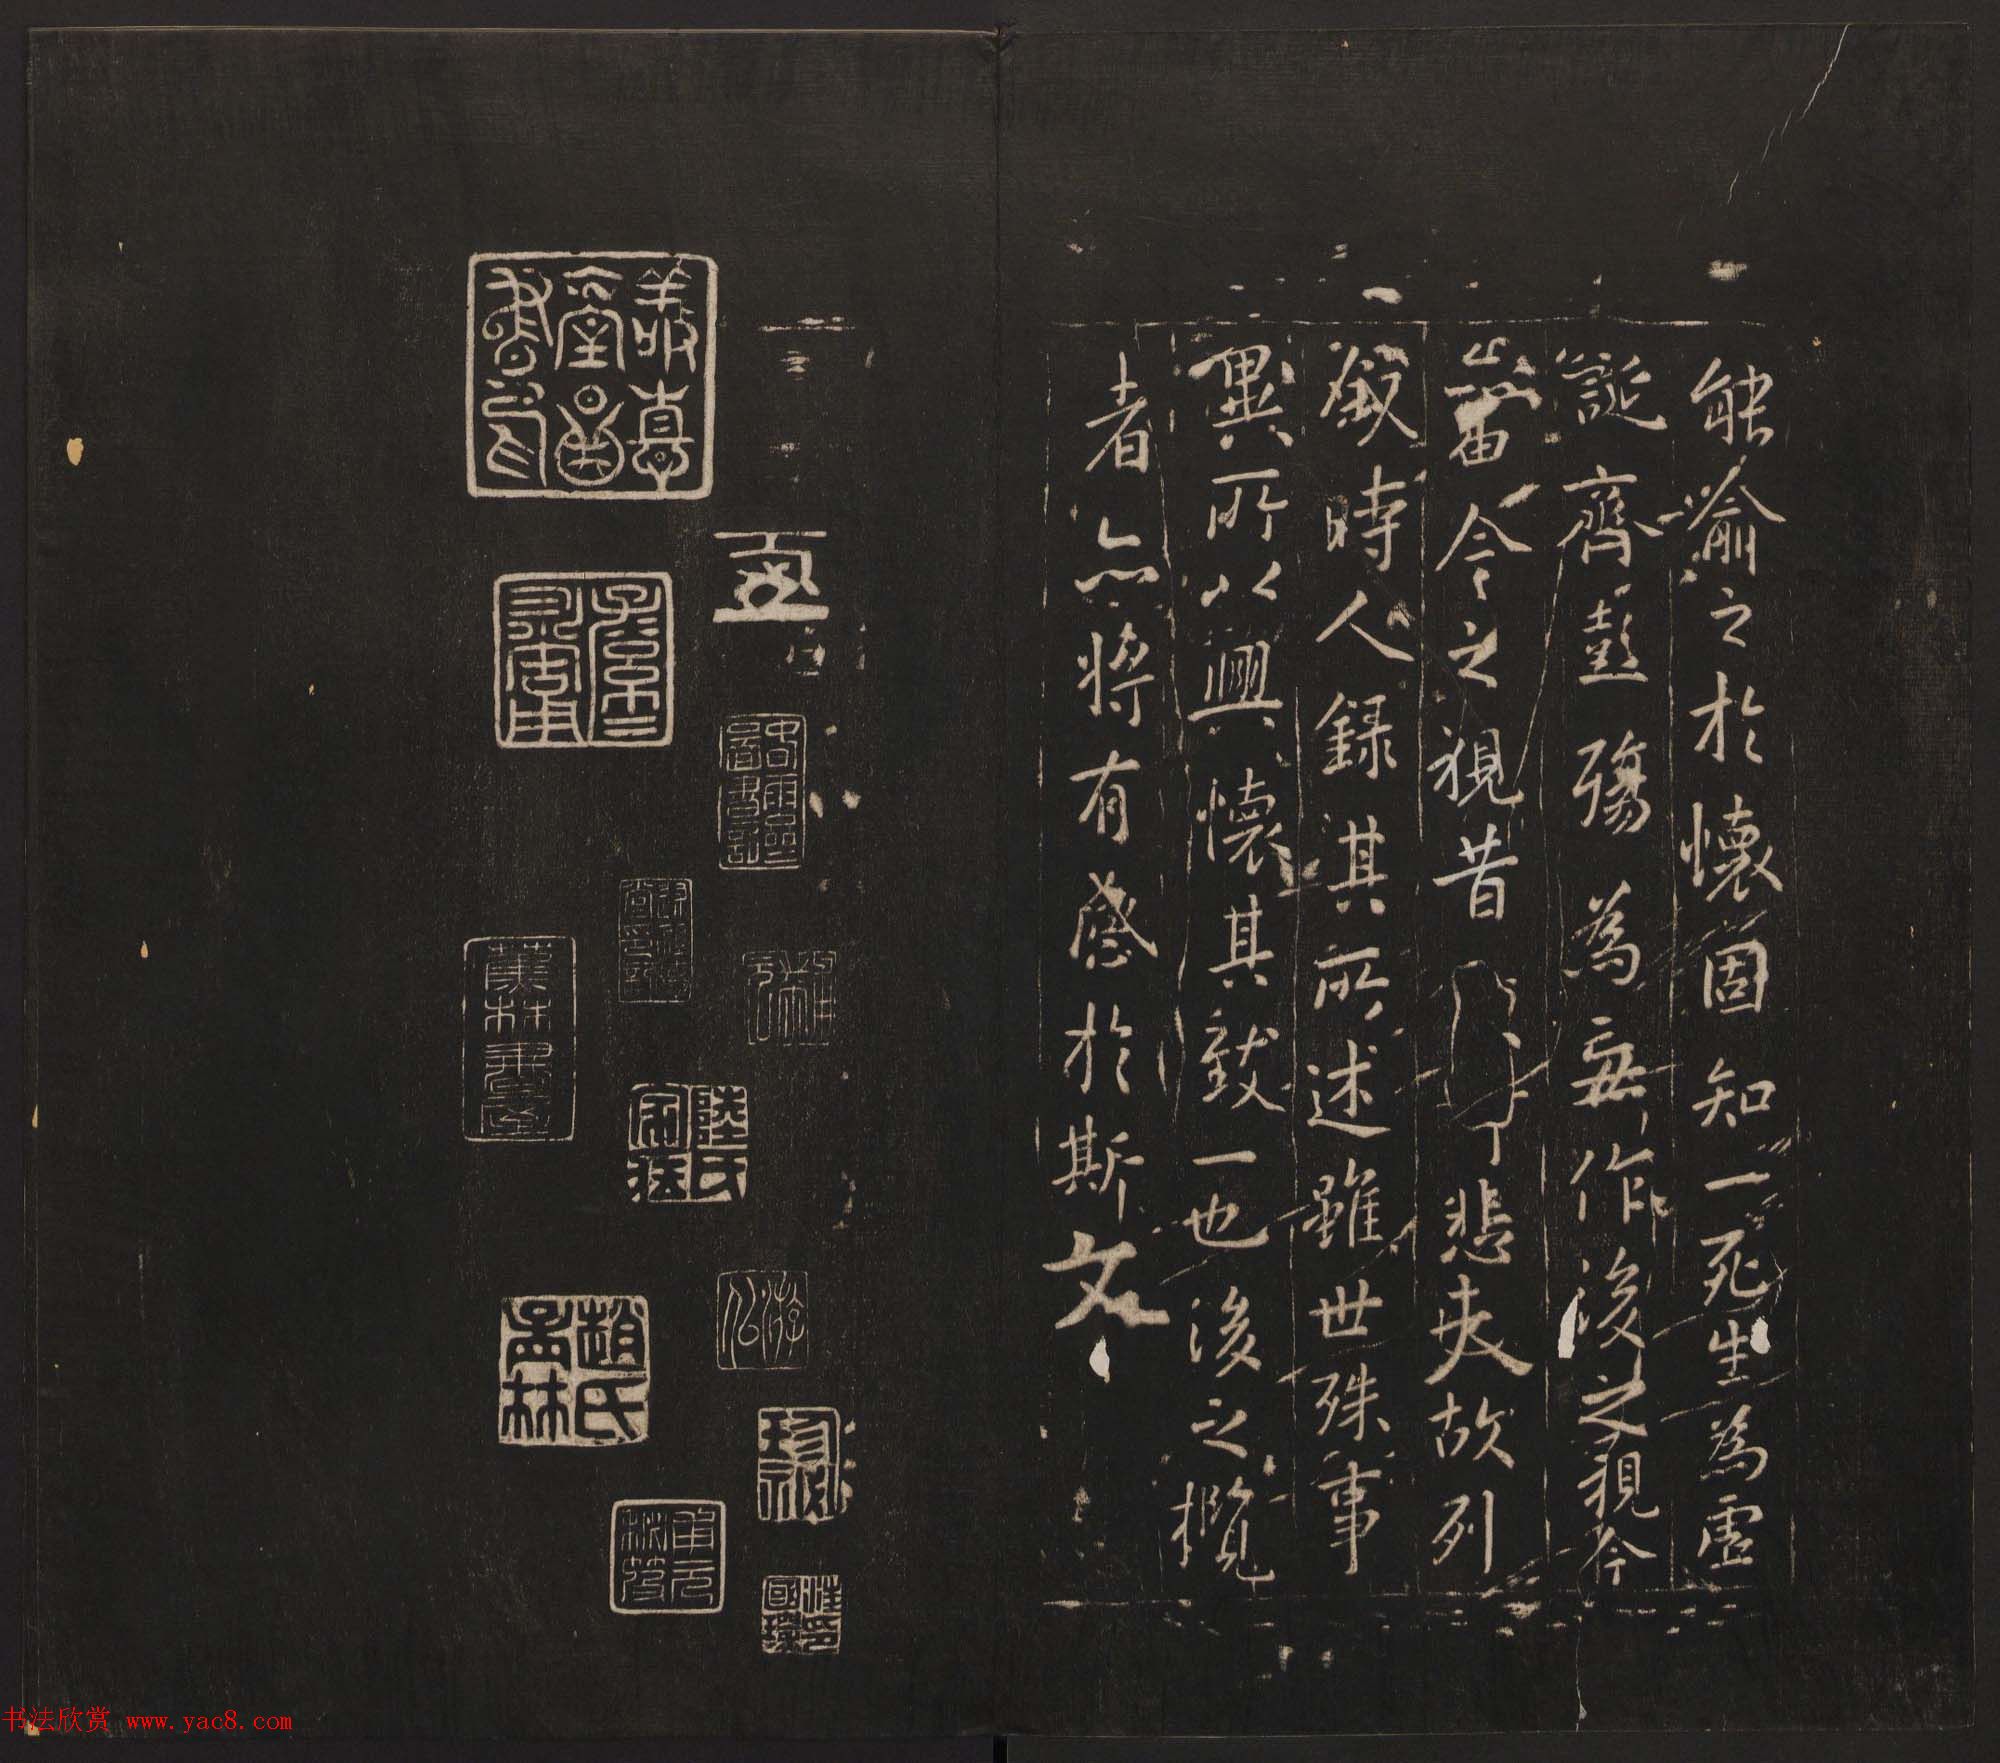 能喻之於懷固知一死生為虛
誕齊彭殤為妄作後之視今
亦由今之視昔悲夫故列
敘時人錄其所述雖世殊事
異所以興懷其致一也後之攬
者亦將有感於斯文
五
蕉林書屋
陸氏家藏
趙氏孟林
书法欣赏 www.yac8.com